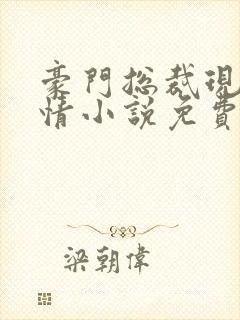 豪門總裁現
情小說免費
梁朝偉